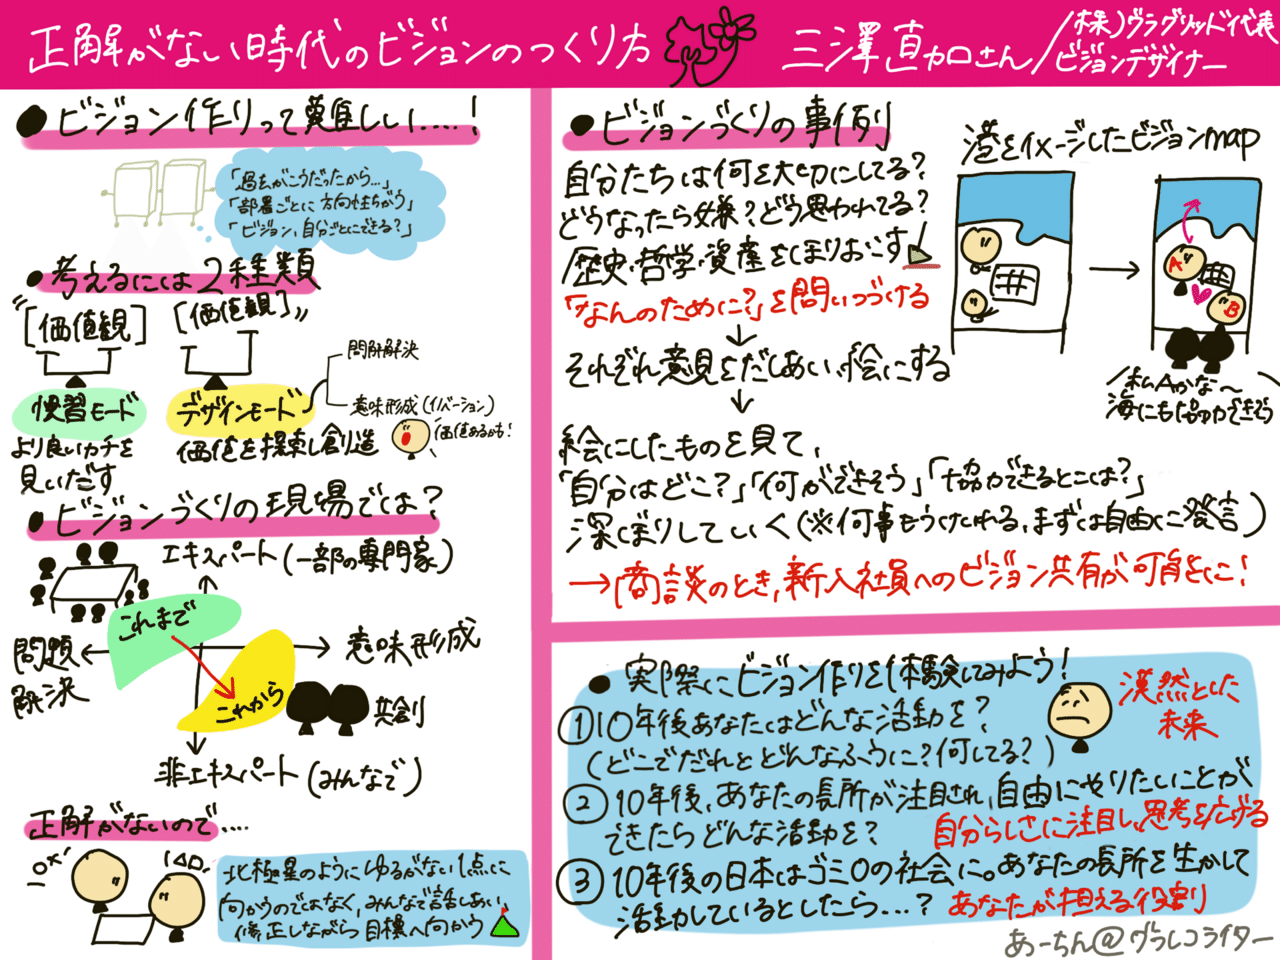 正解がない時代のビジョンのつくり方
三澤直加さん/(株)グラグリッド代表
ビジョンデザイナー
●ビジョン作りって難しい....!
「過去がこうだったから...」
「部署ごとに方向性ちがう」
「ビジョン、自分ごとにできる?」
●考えるには2種類
〝[価値観] [価値観]〟
慣習モード
より良いカチを
見いだす
デザインモード
問題解決
意味形成(イノベーション)
価値を探索し創造
価値あるかも!
●ビジョンづくりの現場では?
エキスパート(一部の専門家)
これまで
問題
解決
意味形成
これから
共創
非エキスパート(みんなで)
正解がないので....
北極星のようにゆるがない1点に
向かうのではなく、みんなで話しあい
修正しながら目標へ向かう
●ビジョンづくりの事例
自分たちは何を大切にしてる?
どうなったら嫌?どう思われてる?
歴史・哲学・資産をほりおこす
「なんのために?」を問いつづける
↓
それぞれ意見をだしあい、絵にする
↓
絵にしたものを見て、
「自分はどこ?」「何ができそう」「協力できるとこは?」
深ぼりしていく(※何事もうけいれる、まずは自由に発言)
→商談のとき、新入社員へのビジョン共有が可能に!
港をイメージしたビジョンmap
A
B
私Aかな〜
海にも協力できそう
●実際にビジョン作りを体験してみよう!
①10年後あなたはどんな活動を?
(どこでだれとどんなふうに?何してる?)
漠然とした
未来
②10年後、あなたの長所が注目され、自由にやりたいことが
できたらどんな活動を?
自分らしさに注目し、思考を広げる
③10年後の日本はゴミ0の社会に。あなたの長所を生かして
活動しているとしたら...?
あなたが担える役割
あーちん@グラレコライター